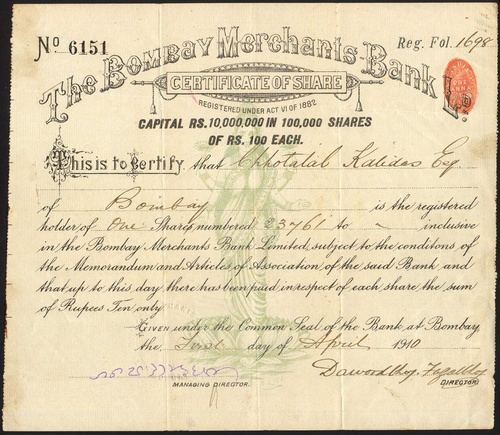 No 6151
Reg. Fol. 1698
The Bombay Merchants Bank Ld.
CERTIFICATE OF SHARE
REGISTERED UNDER ACT VI OF 1882
CAPITAL RS. 10,000,000 IN 100,000 SHARES
OF RS. 100 EACH.
This is to Certify that Chhotalal Kalidas Esq
of Bombay is the registered
holder of One Shares numbered 23761 to - inclusive
in the Bombay Merchants Bank Limited, subject to the conditons of
the Memorandum and Articles of Association of the said Bank and
that up to this day there has been paid in respect of each share the sum
of Rupees Ten only
GIVEN under the Common Seal of the Bank at Bombay,
the First day of April 1910
Dawoodbhoy
MANAGING DIRECTOR.
DIRECTOR.
ONE ANNA